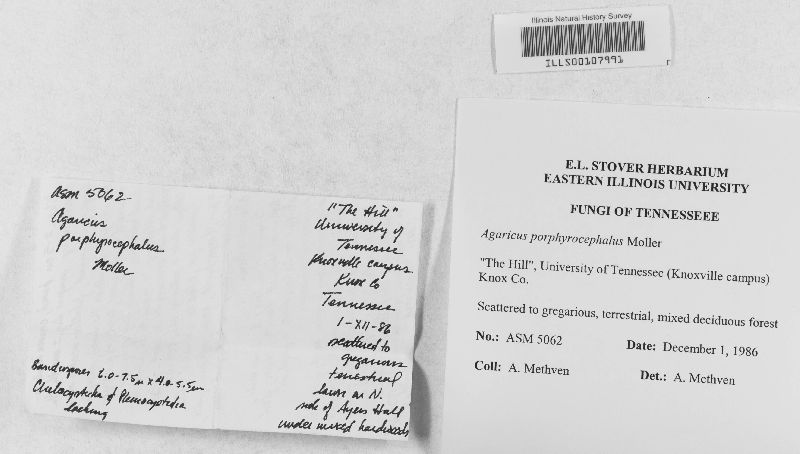 Illinois Natural History Survey
ILLS00107991
asm 5062
Agaricus
porphyrocephalus
Moller
"The Hill"
University of
Tennessee
Knoxville campus
Knox Co
Tennessee
1-XII-86
scattered to
gregarious
terrestrial
lawn on N.
side of Ayers Hall
under mixed hardwoods
6.0-7.5m x 4.0-5.5m
Cheilocystidia & Pleurocystidia
lacking
E.L. STOVER HERBARIUM
EASTERN ILLINOIS UNIVERSITY
FUNGI OF TENNESSEEE
Agaricus porphyrocephalus Moller
"The Hill", University of Tennessee (Knoxville campus)
Knox Co.
Scattered to gregarious, terrestrial, mixed deciduous forest
No.: ASM 5062 Date: December 1, 1986
Coll: A. Methven Det.: A. Methven